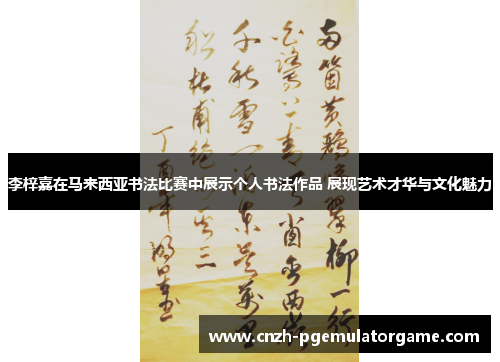 两箇黄鹂翠柳一行
白鷺上青窗含西岭
千秋雪东吴万里
船杜甫绝句三
丁酉年
李梓嘉在马来西亚书法比赛中展示个人书法作品 展现艺术才华与文化魅力
www.cnzh-pgemulatorgame.com